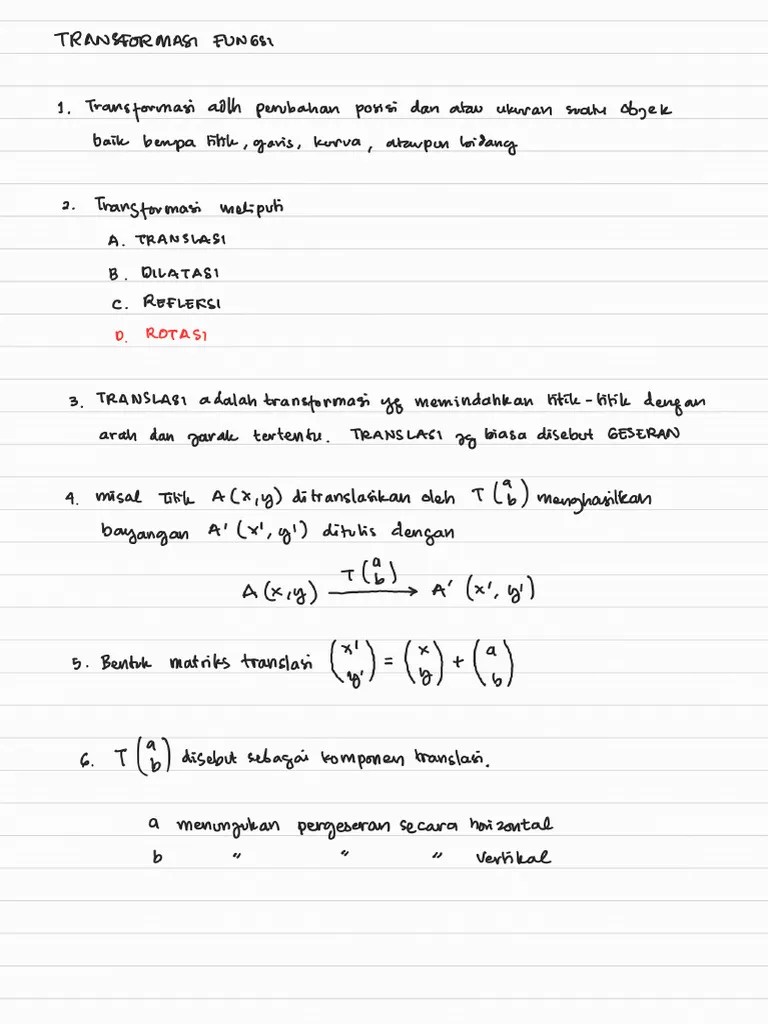 TRANSFORMASI FUNGSI
1. Transformasi adlh perubahan posisi dan atau ukuran suatu objek
baik berupa titik, garis, kurva, ataupun bidang
2. Transformasi meliputi
A. TRANSLASI
B. DILATASI
C. REFLEKSI
D. ROTASI
3. TRANSLASI adalah transformasi yg memindahkan titik-titik dengan
arah dan jarak tertentu. TRANSLASI yg biasa disebut GESERAN
4. misal titik A(x,y) ditranslasikan oleh T(a b) menghasilkan
bayangan A'(x', y') ditulis dengan
A(x,y) T(a b) → A' (x', y')
5. Bentuk matriks translasi (x' y') = (x y) + (a b)
6. T(a b) disebut sebagai komponen translasi.
a menunjukan pergeseran secara horizontal
b " " " vertikal